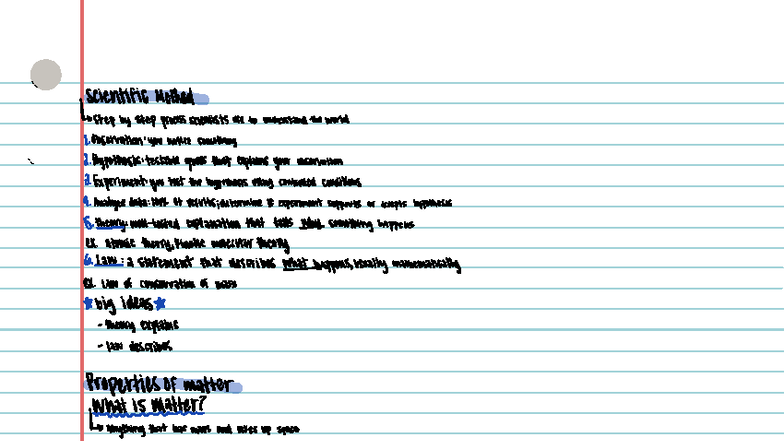 Scientific Method
Step by step process scientists use to understand the world
1. Observation: you notice something
2. Hypothesis: testable guess that explains your observation
3. Experiment: you test the hypothesis using controlled conditions
4. Analyze data: look at results; determine if experiment supports or rejects hypothesis
5. Theory: well-tested explanation that tells why something happens
ex. atomic theory, kinetic molecular theory
6. Law: a statement that describes what happens, usually mathematically
ex. law of conservation of mass
★big ideas★
- theory explains
- law describes
Properties of matter
What is matter?
anything that has mass and takes up space